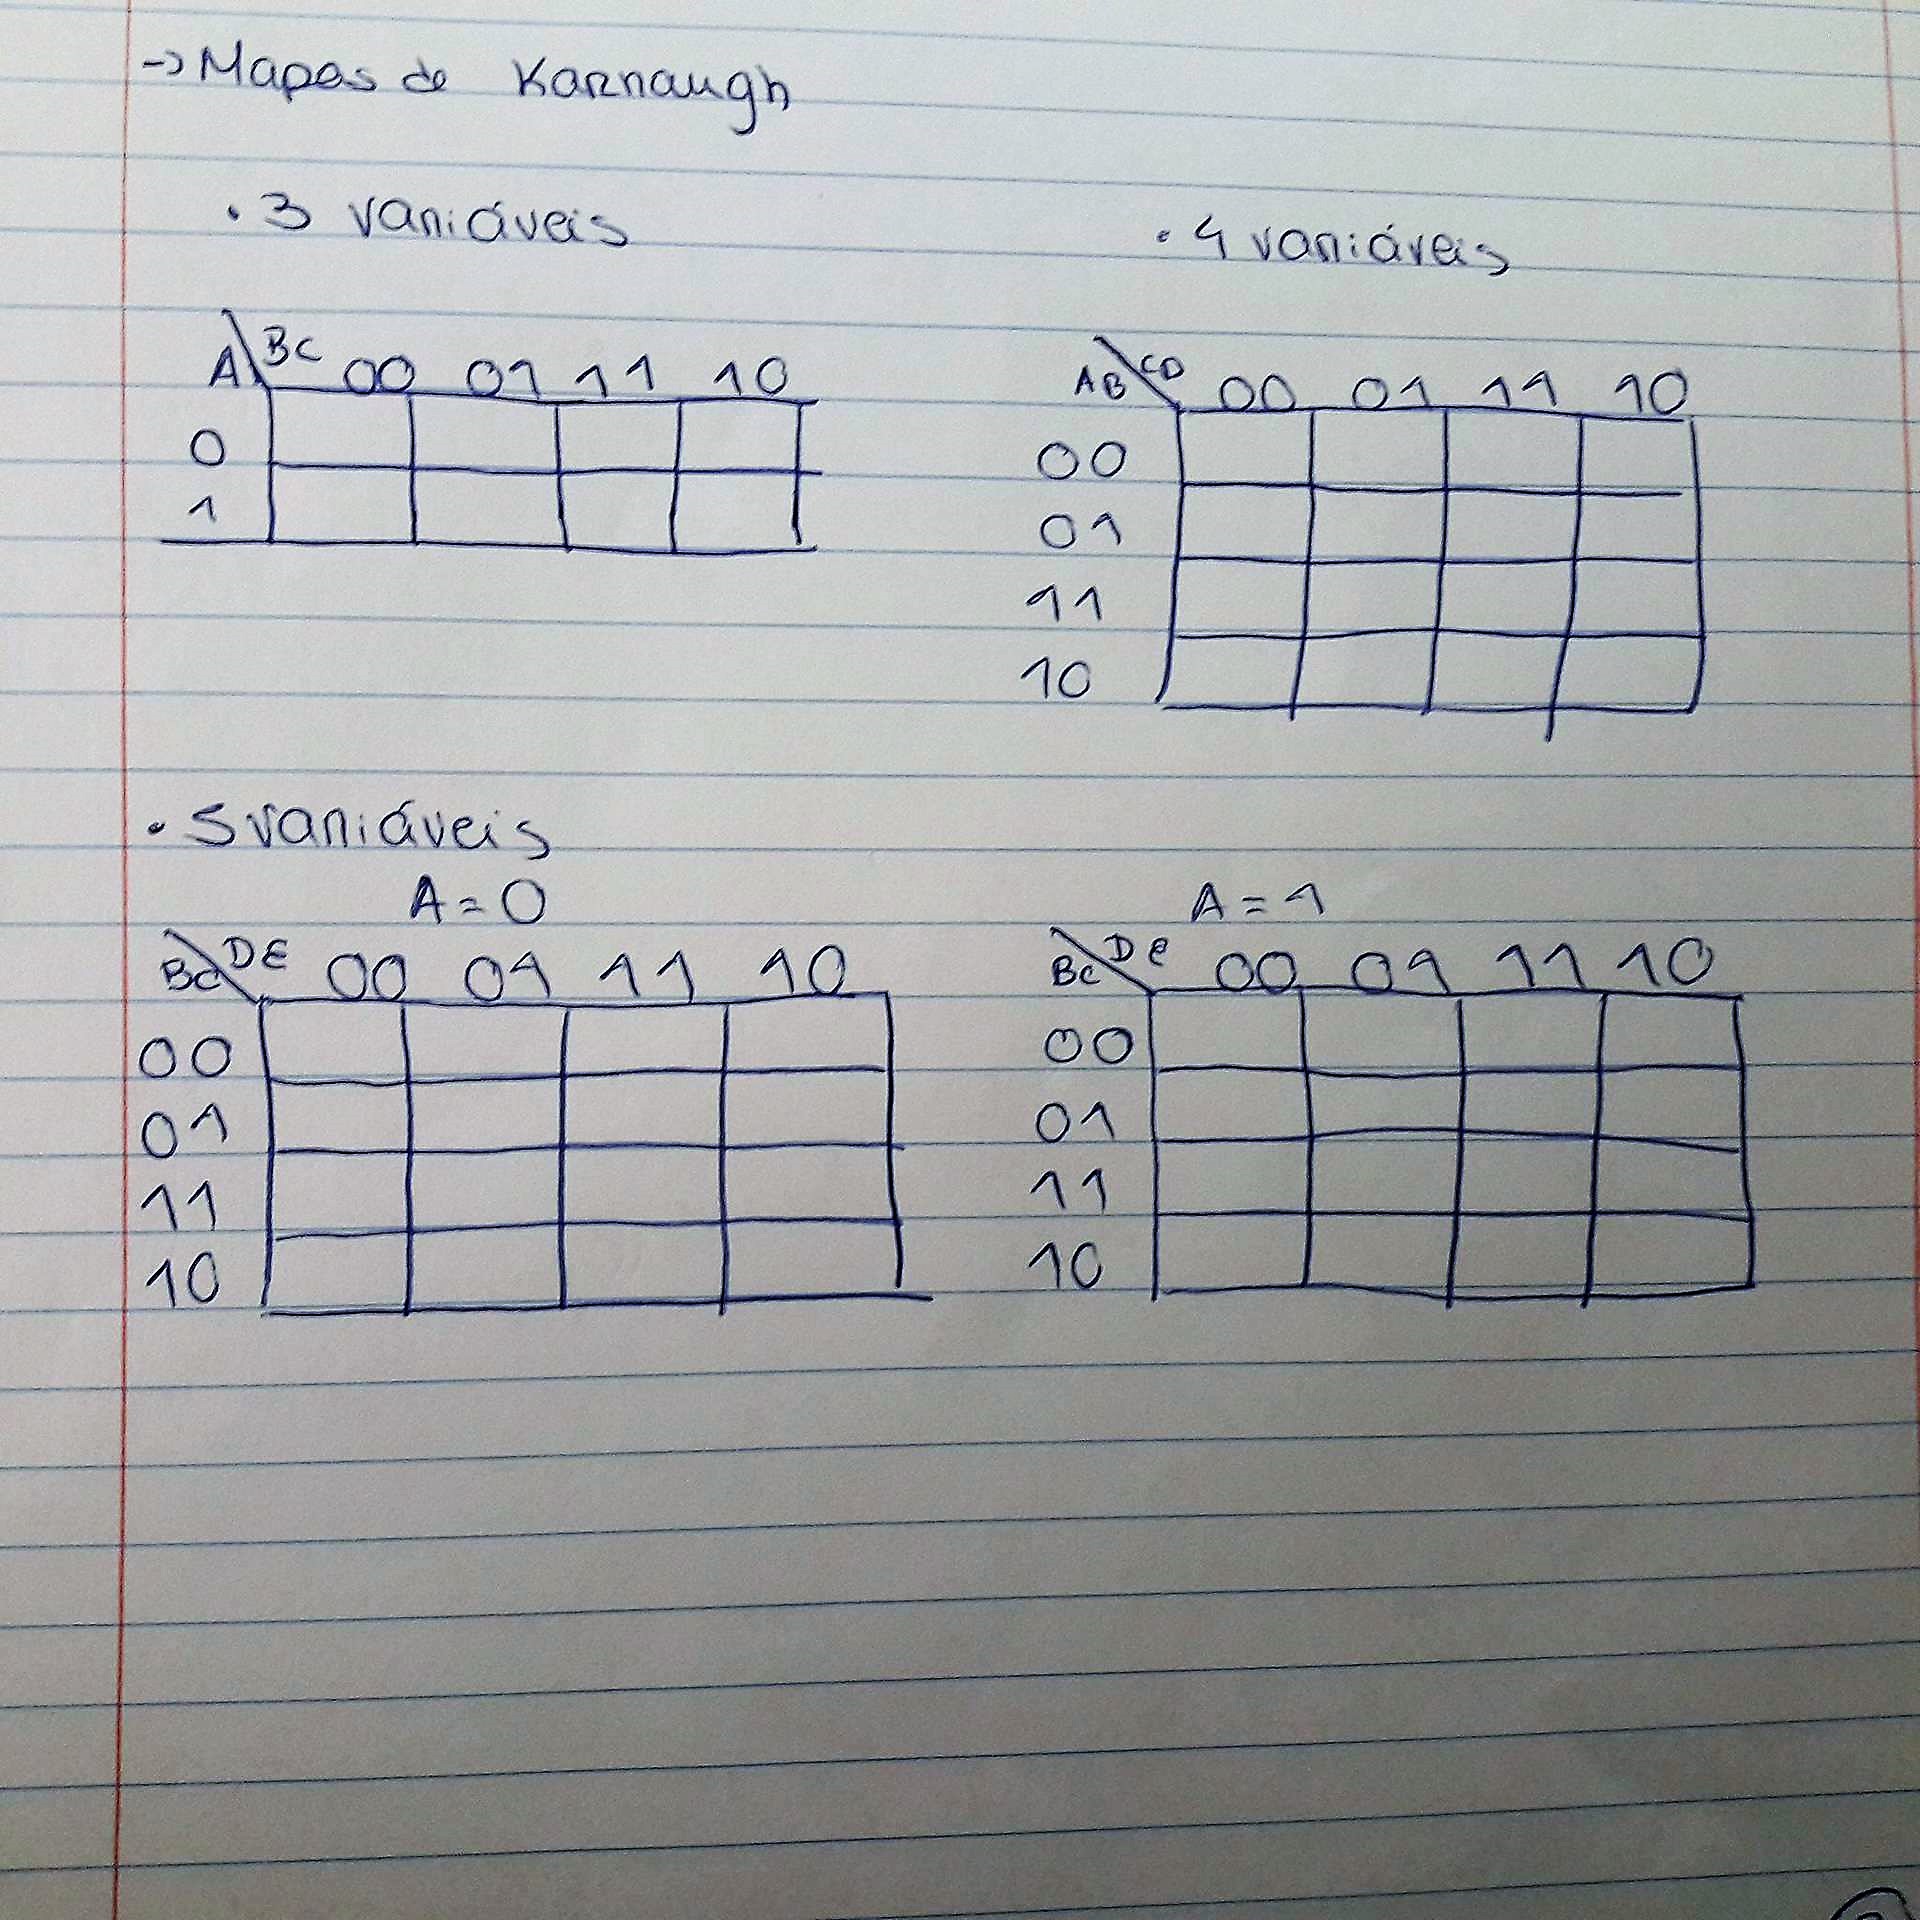 → Mapas de Karnaugh
• 3 variáveis
A\BC 00 01 11 10
0
1
• 4 variáveis
AB\CD 00 01 11 10
00
01
11
10
• 5 variáveis
A = 0
BC\DE 00 01 11 10
00
01
11
10
A = 1
BC\DE 00 01 11 10
00
01
11
10